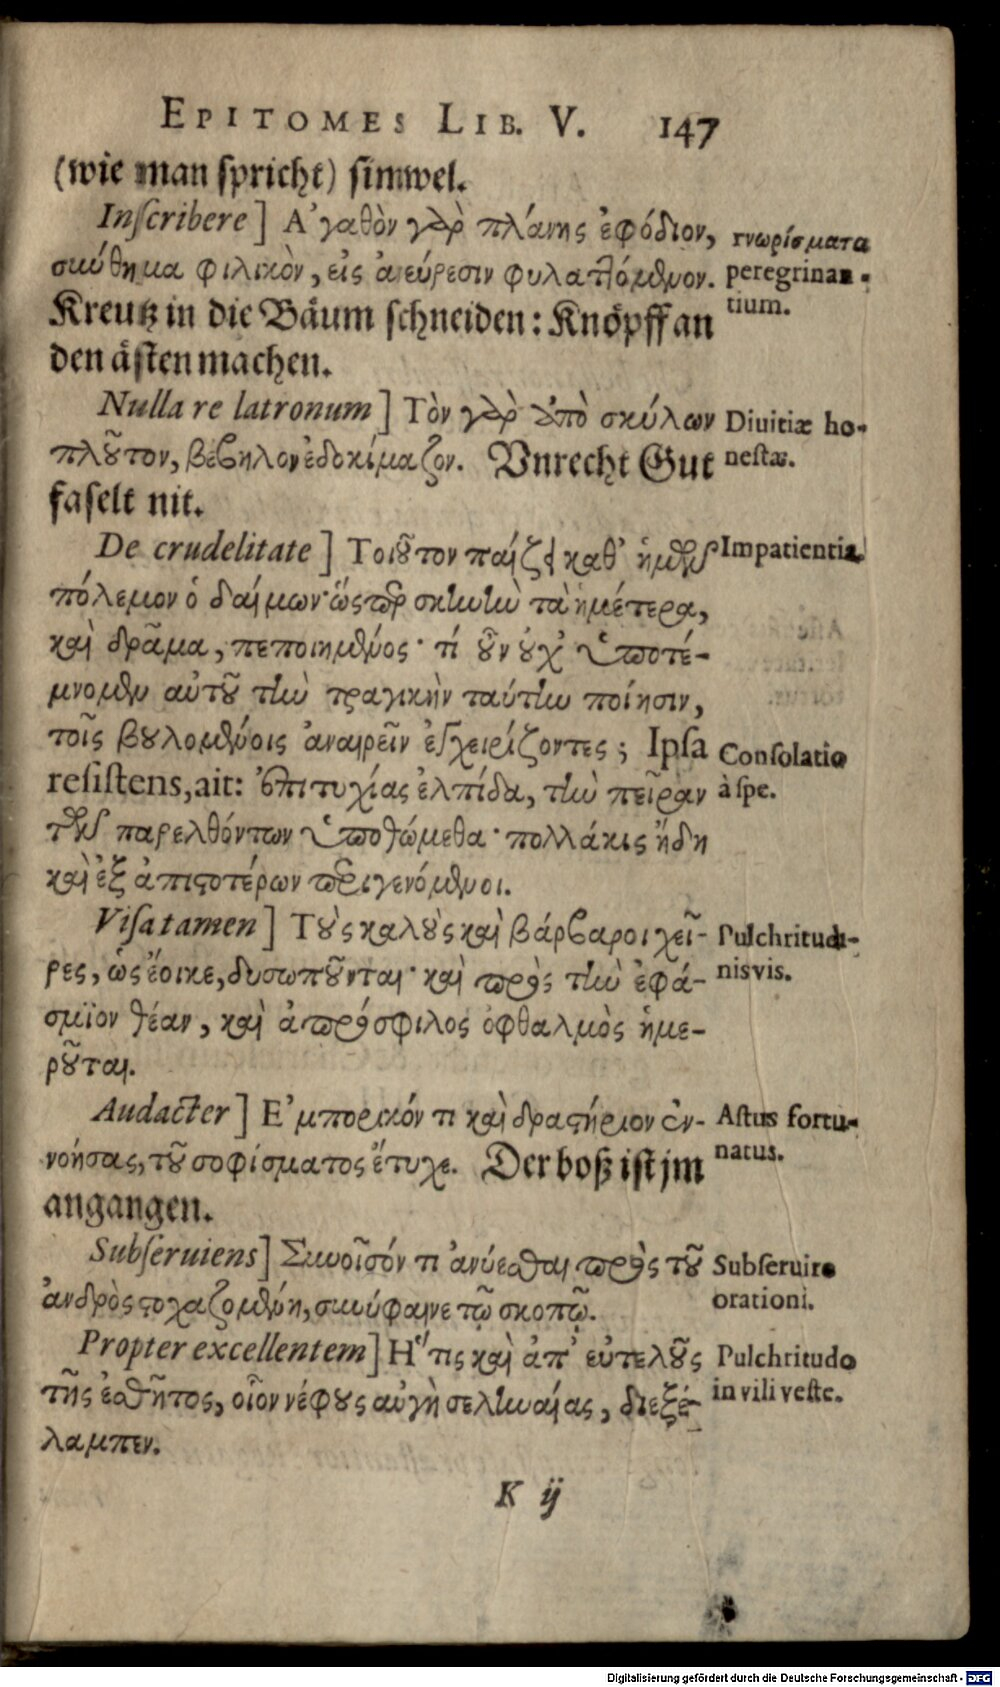 EPITOMES LIB. V. 147
(wie man spricht) simwel.
Inscribere] Ἀγαθὸν γὰρ πλάνης ἐφόδιον,
σύνθημα φιλικὸν, εἰς ἀνεύρεσιν φυλαττόμενον.
γνωρίσματα
peregrinan-
tium.
Kreutz in die Bäum schneiden: Knöpff an
den ästen machen.
Nulla re latronum] Τὸν γὰρ ἀπὸ σκύλων
πλοῦτον, βέβηλον ἐδοκίμαζον. Vnrecht Gut
faselt nit.
Diuitiæ ho-
nestæ.
De crudelitate] Τοιοῦτον παίζει καθ' ἡμῶν
πόλεμον ὁ δαίμων· ὥσπερ σκηνὴν τὰ ἡμέτερα,
καὶ δρᾶμα, πεποιημένος· τί οὖν οὐχ ὑποτέ-
μνομεν αὐτοῦ τὴν τραγικὴν ταύτην ποίησιν,
τοῖς βουλομένοις ἀναιρεῖν ἐγχειρίζοντες; Ipsa
resistens, ait: ἐπιτυχίας ἐλπίδα, τὴν πεῖραν
τῶν παρελθόντων ὑποθώμεθα· πολλάκις ἤδη
καὶ ἐξ ἀπιστοτέρων περιγενόμενοι.
Impatientia.
Consolatio
à spe.
Visa tamen] Τοὺς καλοὺς καὶ βάρβαροι χεῖ-
ρες, ὡς ἔοικε, δυσωποῦνται· καὶ πρὸς τὴν ἐφά-
σμϊον θέαν, καὶ ἀπρόσφιλος ὀφθαλμὸς ἡμε-
ροῦται.
Pulchritudi-
nis vis.
Audacter] Ἐμπορικόν τι καὶ δραστήριον ἐν-
νοήσας, τοῦ σοφίσματος ἔτυχε. Der boß ist jm
angangen.
Astus fortu-
natus.
Subseruiens] Συνοῖσόν τι ἀνύεσθαι πρὸς τοῦ
ἀνδρὸς στοχαζομένη, συνύφαινε τῷ σκοπῷ.
Subseruire
orationi.
Propter excellentem] Ἥτις καὶ ἀπ' εὐτελοῦς
τῆς ἐσθῆτος, οἷον νέφους αὐγὴ σεληναίας, διεξέ-
λαμπεν.
Pulchritudo
in vili veste.
K ij
Digitalisierung gefördert durch die Deutsche Forschungsgemeinschaft - DFG